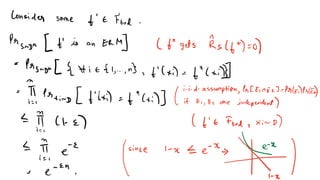 Consider some f' ∈ F_bad.
Pr_{S~D^n} [ f' is an ERM ] ( f* gets R̂_S(f*)=0 )
= Pr_{S~D^n} [ { ∀ i ∈ {1,…,n}, f'(x_i) = f*(x_i) } ]
= ∏_{i=1}^{n} Pr_{x_i~D} [ f'(x_i) = f*(x_i) ] ( i.i.d. assumption, Pr[E_1 ∩ E_2] = Pr(E_1) Pr(E_2)
if E_1, E_2 are independent )
≤ ∏_{i=1}^{n} (1-ε) ( f' ∈ F_bad, x_i ~ D )
≤ ∏_{i=1}^{n} e^{-ε} ( since 1-x ≤ e^{-x} → e^{-x}
= e^{-εn}. 1-x )